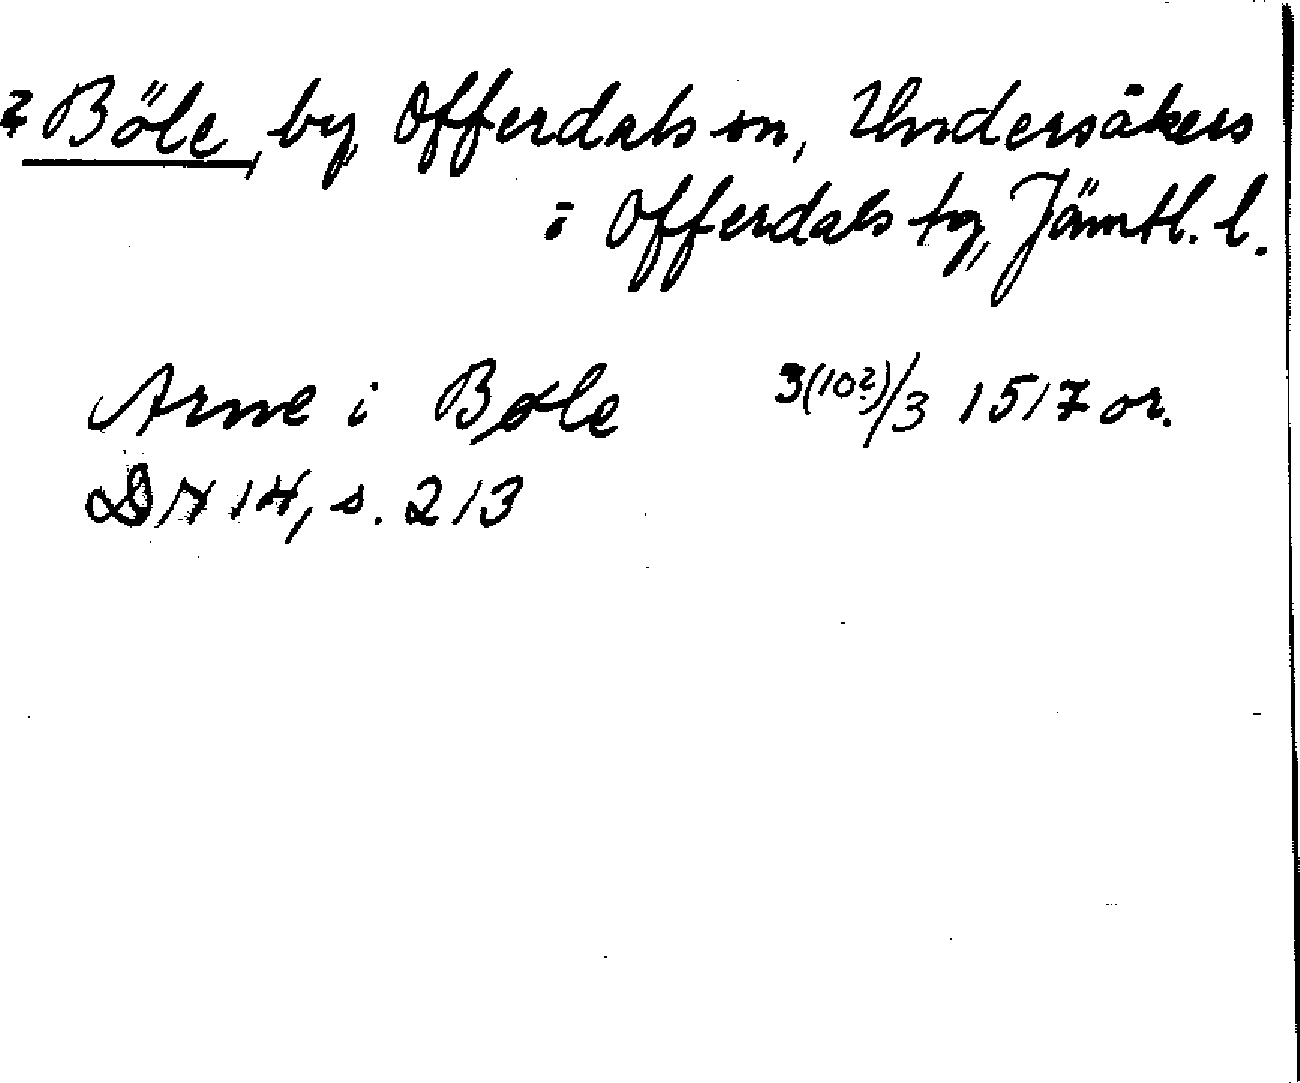 ? Böle, by, Offerdals sn, Undersåkers
o Offerdals tg, Jämtl. l.
Arne i Bøle 3(10?)/3 1517 or.
DN 14, s. 213